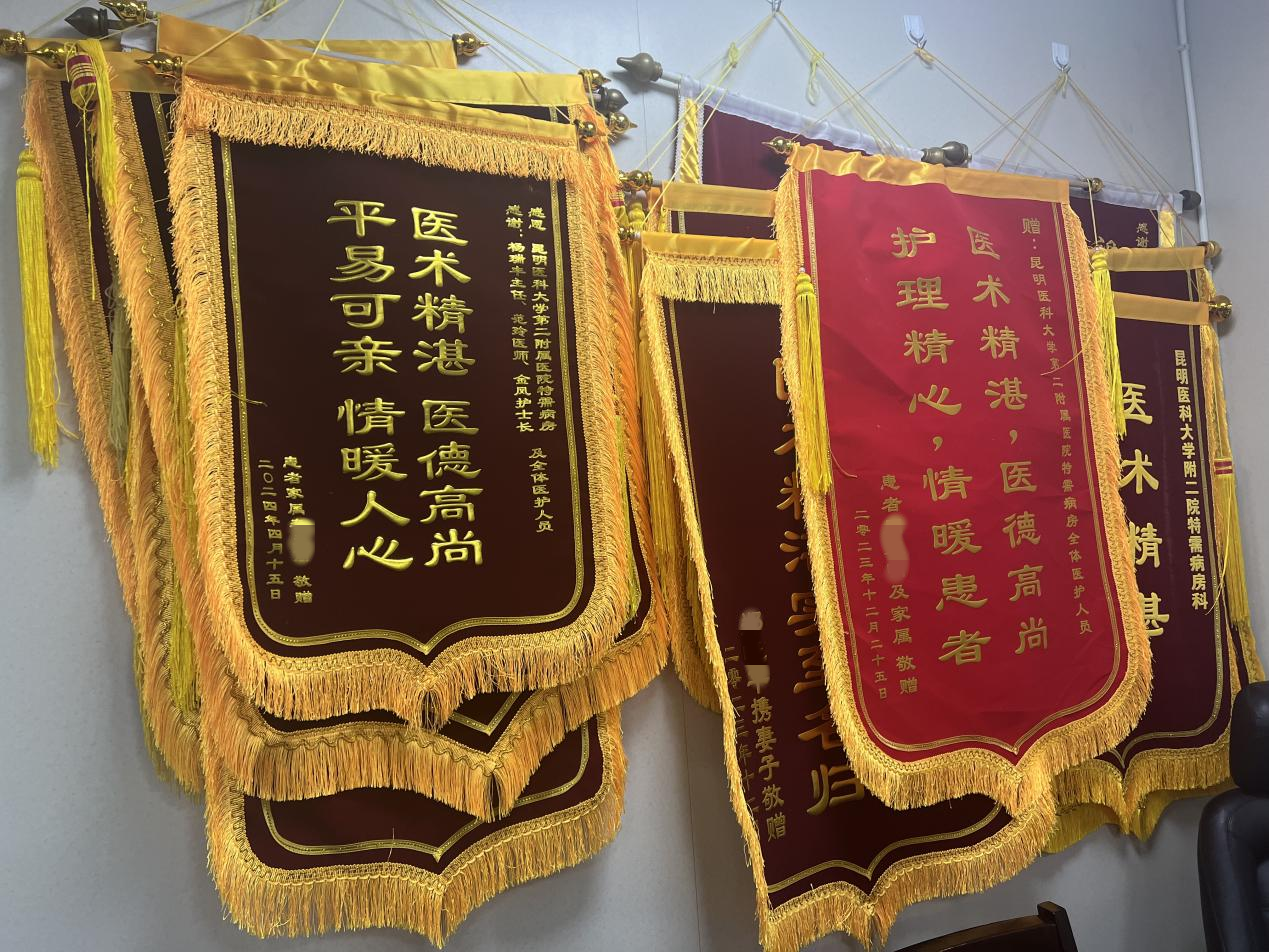 感恩 昆明医科大学第二附属医院特需病房
感谢：杨瑞丰主任、范玲医师 金凤护士长 及全体医护人员
医术精湛 医德高尚
平易可亲 情暖人心
患者家属 敬赠
二〇二四年四月十五日
赠：昆明医科大学第二附属医院特需病房全体医护人员
医术精湛，医德高尚
护理精心，情暖患者
患者 及家属 敬赠
二零二三年十二月二十五日
携妻子敬赠
感谢
昆明医科大学附二院特需病房科
医术精湛